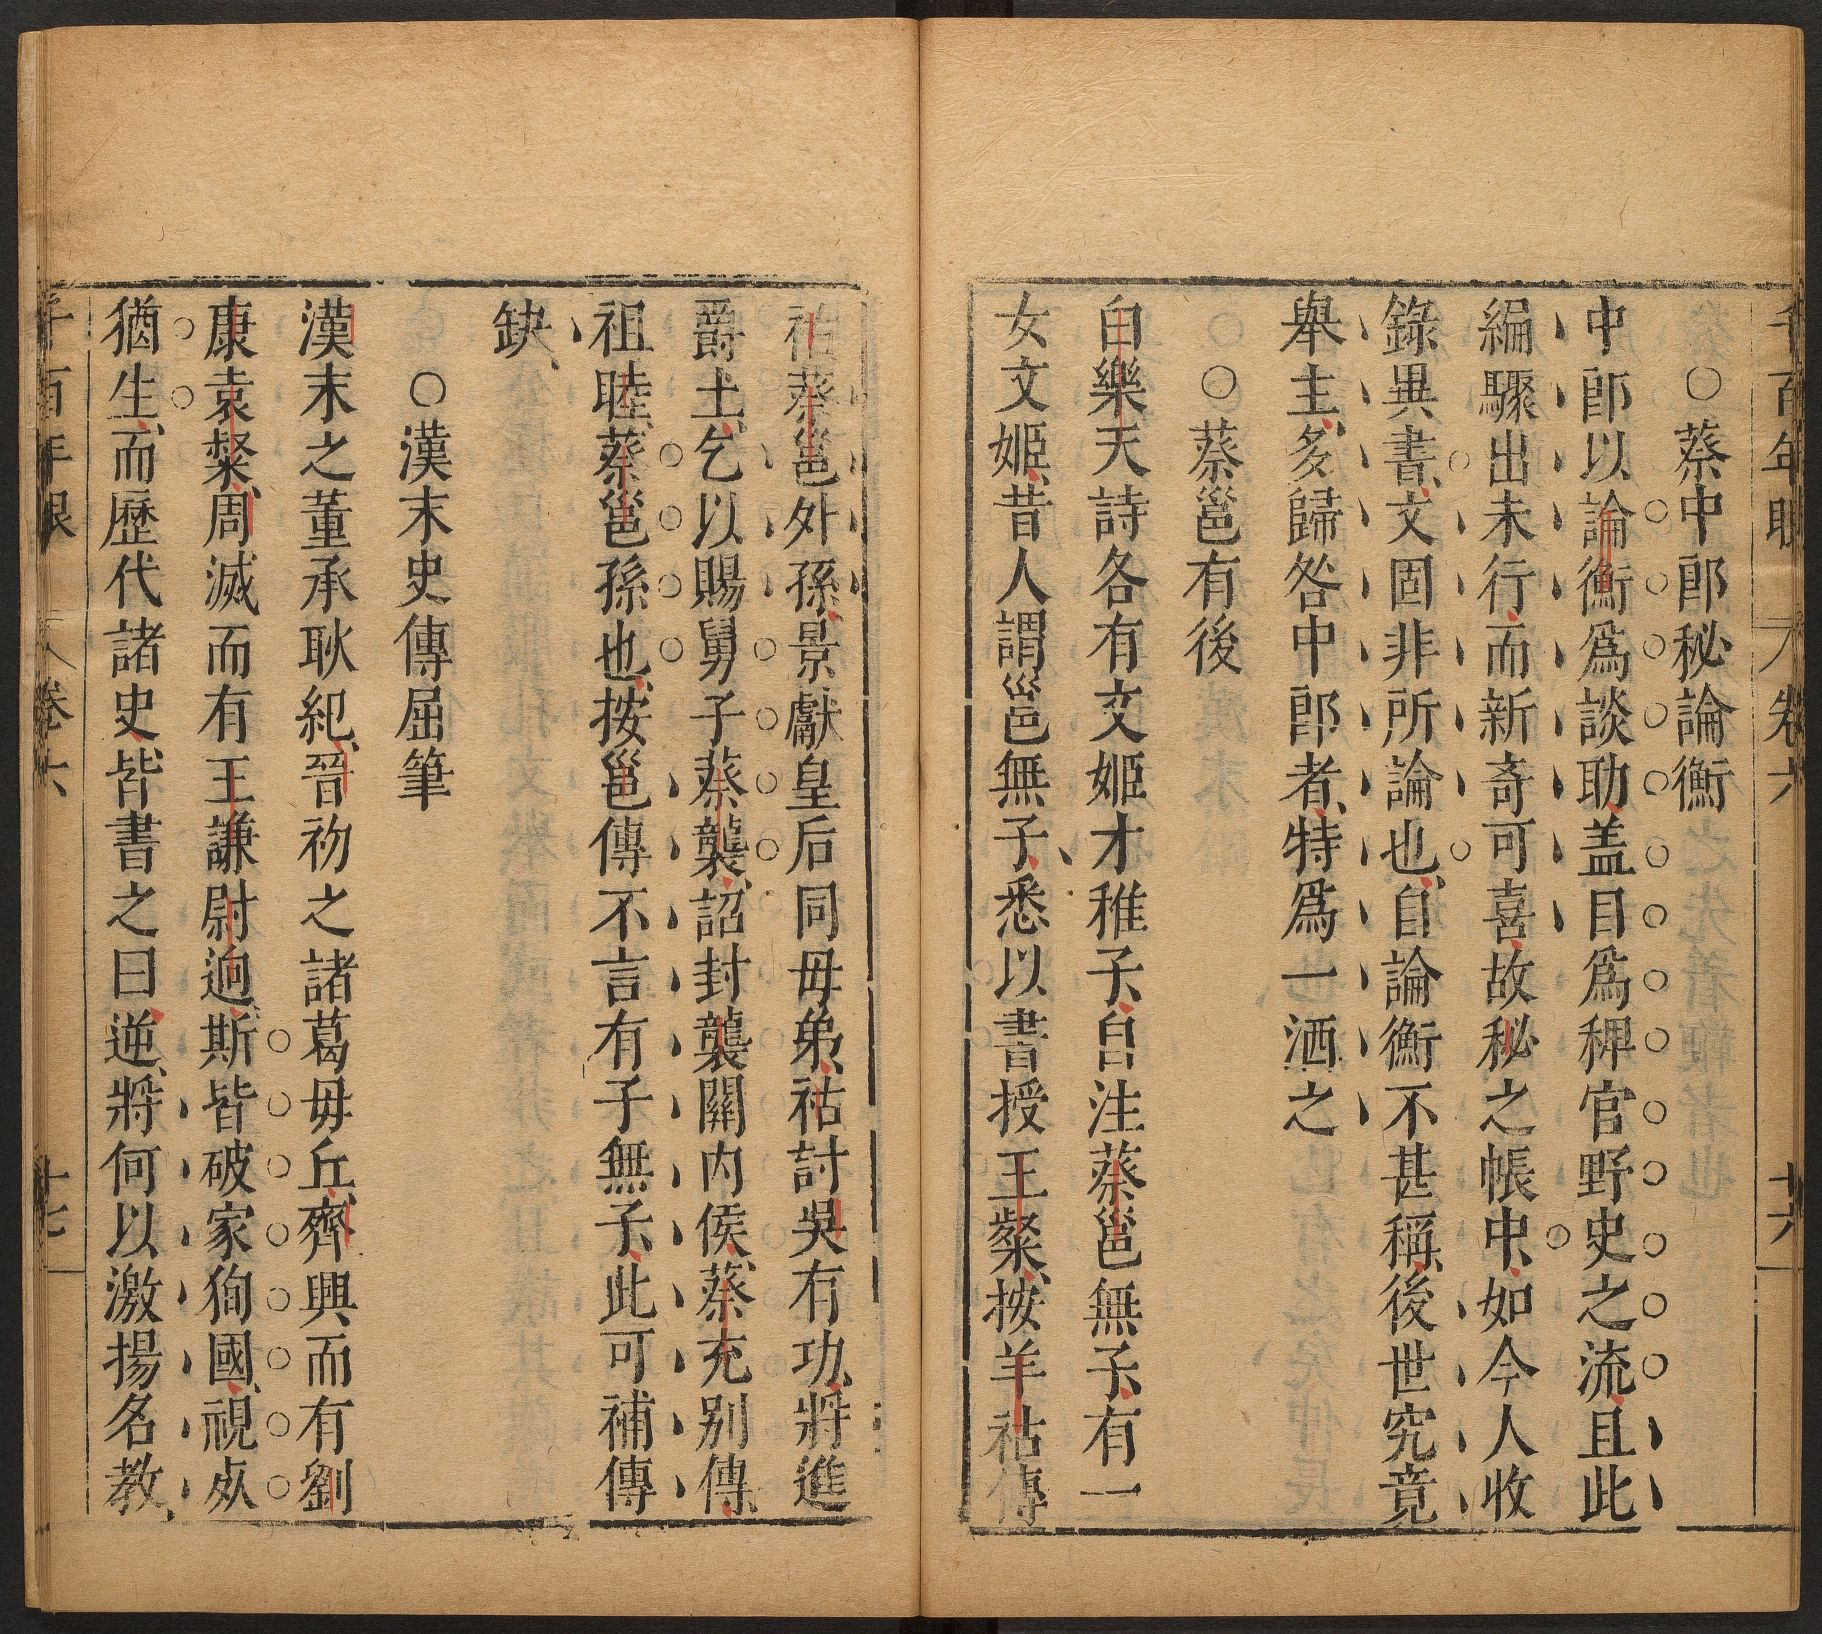 千百年眼 卷六 十六
○蔡中郎秘論衡
中郎以論衡爲談助盖目爲稗官野史之流且此
編驟出未行而新奇可喜故秘之帳中如今人收
錄異書文固非所論也自論衡不甚稱後世究竟
舉主多歸咎中郎者特爲一洒之
○蔡邕有後
白樂天詩各有文姬才稚子自注蔡邕無子有一
女文姬昔人謂邕無子悉以書授王粲按羊祜傳
祜蔡邕外孫景獻皇后同毋弟祜討吳有功將進
爵土乞以賜舅子蔡襲詔封襲關内侯蔡充别傳
祖睦蔡邕孫也按邕傳不言有子無子此可補傳
缺
○漢末史傳屈筆
漢末之董承耿紀晉初之諸葛毋丘齊興而有劉
康袁粲周滅而有王謙尉逈斯皆破家狥國視死
猶生而歷代諸史皆書之曰逆將何以激揚名教
千百年眼 卷六 十七